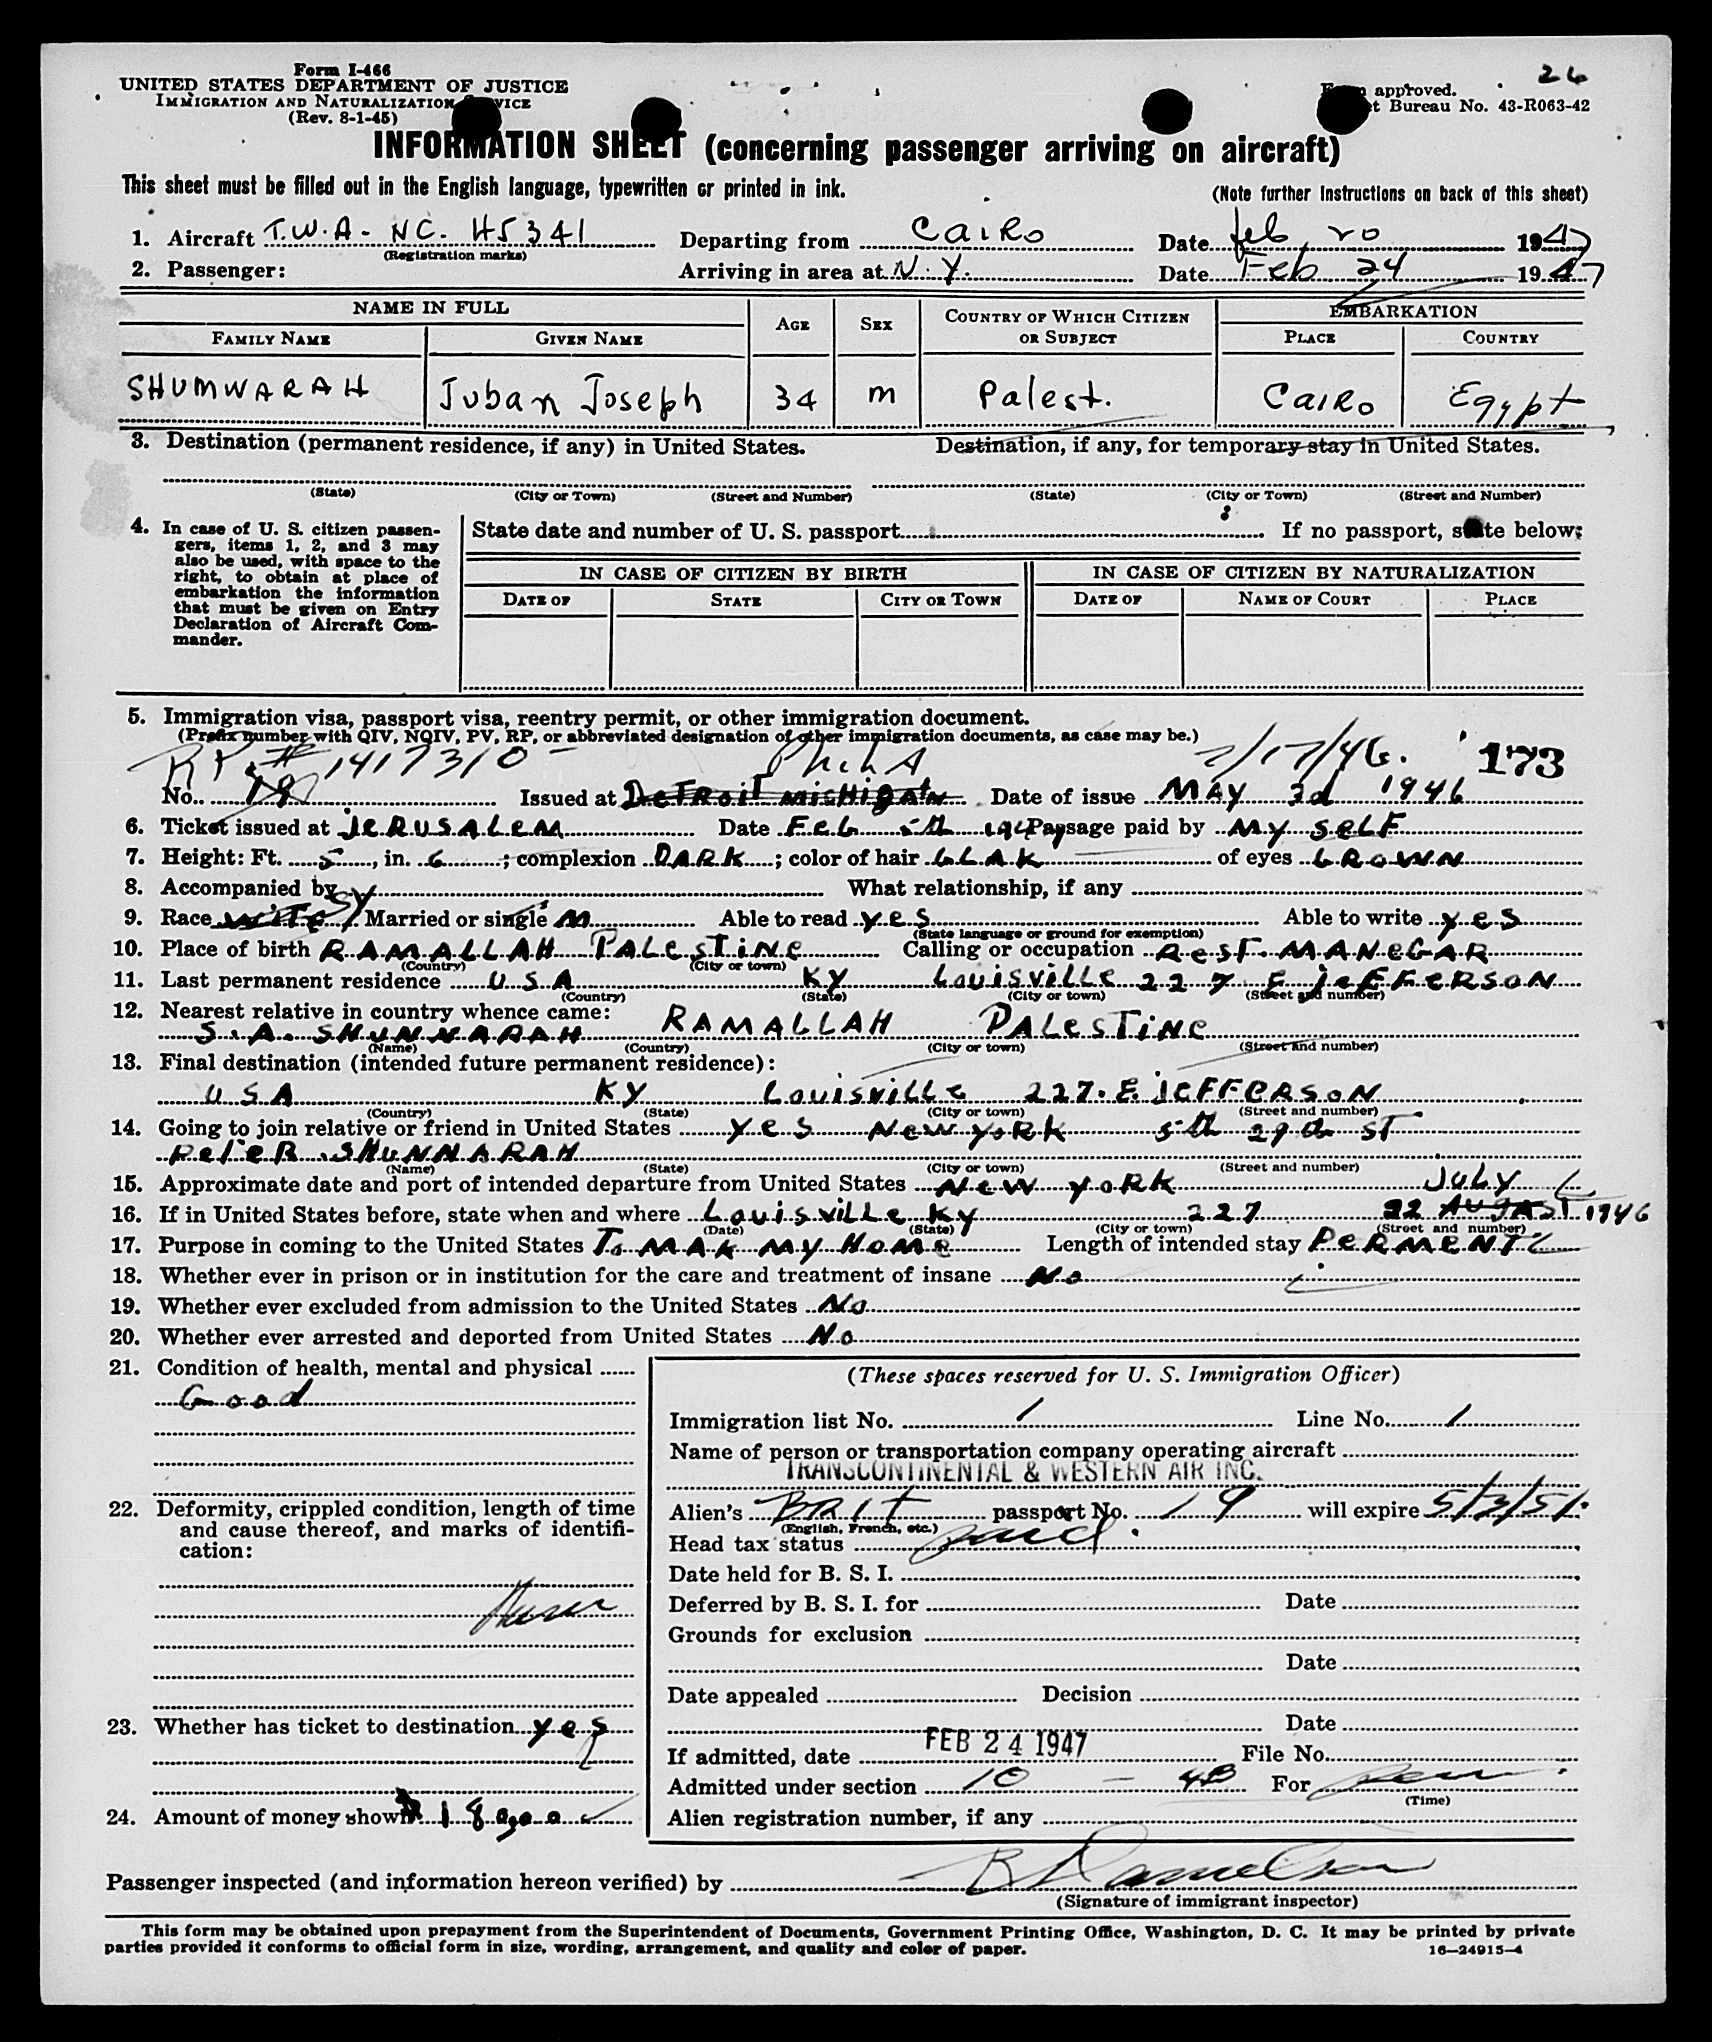 26
Form I-466
UNITED STATES DEPARTMENT OF JUSTICE
IMMIGRATION AND NATURALIZATION SERVICE
(Rev. 8-1-45)
approved.
Bureau No. 43-R063-42
INFORMATION SHEET (concerning passenger arriving on aircraft)
This sheet must be filled out in the English language, typewritten or printed in ink.
(Note further instructions on back of this sheet)
1. Aircraft T.W.A - NC. 45341 Departing from CAIRO Date Feb 20 1947
(Registration marks)
2. Passenger: Arriving in area at N.Y. Date Feb 24 1947
NAME IN FULL AGE SEX COUNTRY OF WHICH CITIZEN OR SUBJECT EMBARKATION
FAMILY NAME GIVEN NAME PLACE COUNTRY
SHUMWARAH Juban Joseph 34 m Palest. CAIRO Egypt
3. Destination (permanent residence, if any) in United States. Destination, if any, for temporary stay in United States.
(State) (City or Town) (Street and Number) (State) (City or Town) (Street and Number)
4. In case of U. S. citizen passengers, items 1, 2, and 3 may also be used, with space to the right, to obtain at place of embarkation the information that must be given on Entry Declaration of Aircraft Commander.
State date and number of U. S. passport If no passport, state below:
IN CASE OF CITIZEN BY BIRTH IN CASE OF CITIZEN BY NATURALIZATION
DATE OF STATE CITY OR TOWN DATE OF NAME OF COURT PLACE
5. Immigration visa, passport visa, reentry permit, or other immigration document.
(Prefix number with QIV, NQIV, PV, RP, or abbreviated designation of other immigration documents, as case may be.)
RP # 1417310 - PhilA 7/17/46. 173
No. 19 Issued at DETROIT MICHIGAN Date of issue MAY 3d 1946
6. Ticket issued at JERUSALEM Date FEB 5th 1947 Passage paid by MY SELF
7. Height: Ft. 5, in. 6; complexion DARK; color of hair BLAK of eyes BROWN
8. Accompanied by What relationship, if any
9. Race WITE SY Married or single M Able to read yes Able to write yes
(State language or ground for exemption)
10. Place of birth RAMALLAH PALESTINE Calling or occupation REST. MANEGAR
(Country) (City or town)
11. Last permanent residence USA KY Louisville 227 E JEFFERSON
(Country) (State) (City or town) (Street and number)
12. Nearest relative in country whence came:
S. A. SHUNNARAH RAMALLAH PALESTINE
(Name) (Country) (City or town) (Street and number)
13. Final destination (intended future permanent residence):
USA KY LOUISVILLE 227. E. JEFFERSON
(Country) (State) (City or town) (Street and number)
14. Going to join relative or friend in United States yes NEW YORK 5th 29th ST
PETER SHUNNARAH
(Name) (State) (City or town) (Street and number)
15. Approximate date and port of intended departure from United States NEW YORK JULY
16. If in United States before, state when and where LOUISVILLE KY 227 22 AUGAST 1946
(Date) (State) (City or town) (Street and number)
17. Purpose in coming to the United States To MAK MY HOME Length of intended stay PERMENT
18. Whether ever in prison or in institution for the care and treatment of insane No
19. Whether ever excluded from admission to the United States No
20. Whether ever arrested and deported from United States No
21. Condition of health, mental and physical
Good
22. Deformity, crippled condition, length of time and cause thereof, and marks of identification:
23. Whether has ticket to destination yes
24. Amount of money shown
(These spaces reserved for U. S. Immigration Officer)
Immigration list No. 1 Line No. 1
Name of person or transportation company operating aircraft
TRANSCONTINENTAL & WESTERN AIR INC.
Alien's BRIT passport No. 19 will expire 5/3/51.
(English, French, etc.)
Head tax status paid.
Date held for B. S. I.
Deferred by B. S. I. for Date
Grounds for exclusion
Date
Date appealed Decision
Date
If admitted, date FEB 24 1947 File No.
Admitted under section 10 - 4B For Perm.
(Time)
Alien registration number, if any
Passenger inspected (and information hereon verified) by
(Signature of immigrant inspector)
This form may be obtained upon prepayment from the Superintendent of Documents, Government Printing Office, Washington, D. C. It may be printed by private
parties provided it conforms to official form in size, wording, arrangement, and quality and color of paper. 16—24915-4